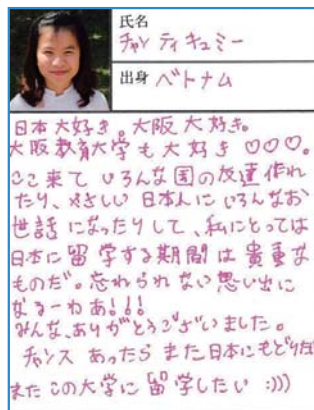 氏名
チャン ティ キュミー
出身 ベトナム
日本大好き。大阪大好き。
大阪教育大学も大好き♡♡♡。
ここ来て いろんな国の友達作れ
たり、やさしい日本人にいろんなお
世話になったりして、私にとっては
日本に留学する期間は貴重な
ものだ。忘れられない思い出に
なるーわあ!!!
みんな、ありがとうございました。
チャンス あったら また日本にもどりたい
またこの大学に留学したい :)))